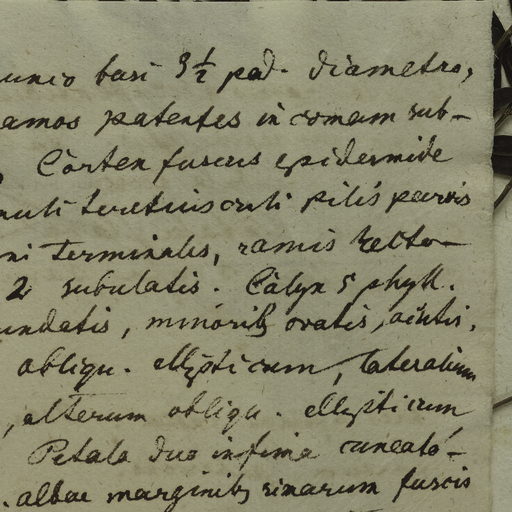 basi 3½ ped. diametro,
amos patentes in comam sub-
Cortex fuscus epidermide
muli teretiusculi pilis parvis
ni terminales, ramis recto-
2 subulatis. Calyx 5 phyll.
undatis, minorib ovatis, acutis.
obliqu. ellipticum, lateralium
, alterum obliqu. ellipticum
Petala duo infima cuneato-
. albae marginib rimarum fuscis